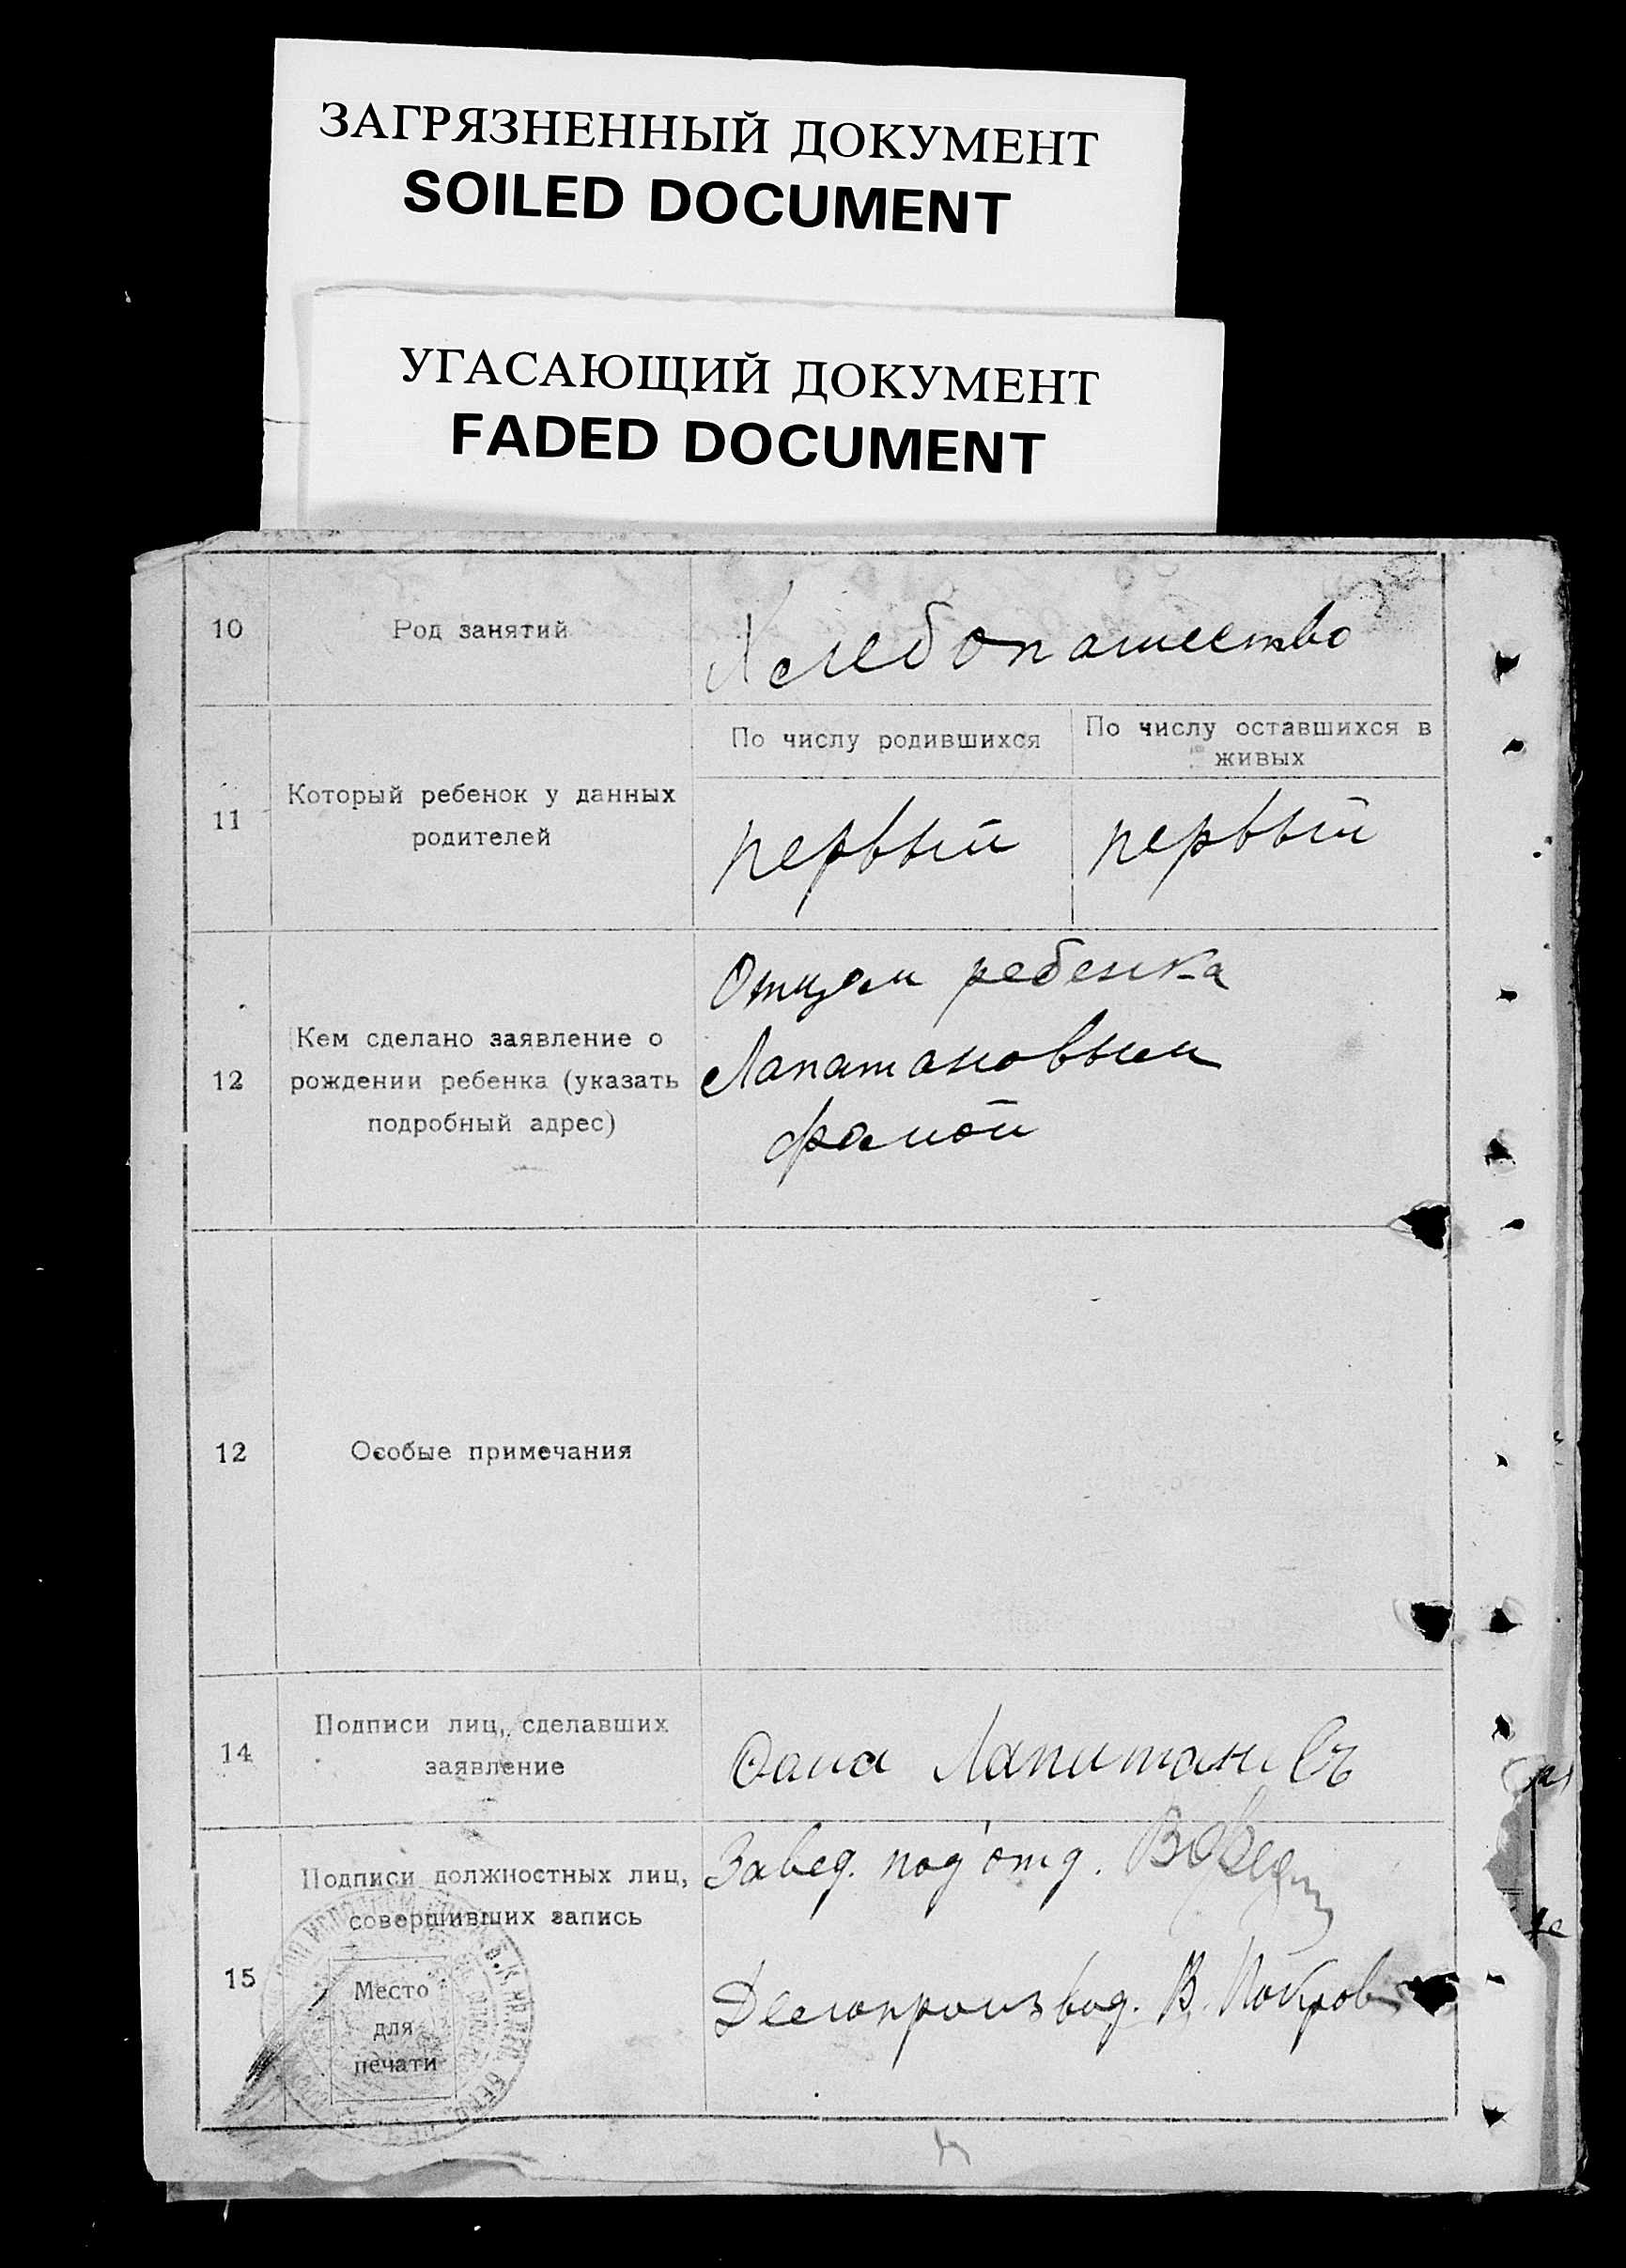 ЗАГРЯЗНЕННЫЙ ДОКУМЕНТ
SOILED DOCUMENT
УГАСАЮЩИЙ ДОКУМЕНТ
FADED DOCUMENT
10 Род занятий Хлебопашество
11 Который ребенок у данных родителей
По числу родившихся
По числу оставшихся в
живых
первый первый
12 Кем сделано заявление о
рождении ребенка (указать
подробный адрес)
Отцом ребенка
Лапатановым
фомой
12 Особые примечания
14 Подписи лиц, сделавших
заявление
Фома
15 Подписи должностных лиц,
совершивших запись
Завед. под'отд.
Делопроизвод. В.
Место
для
печати